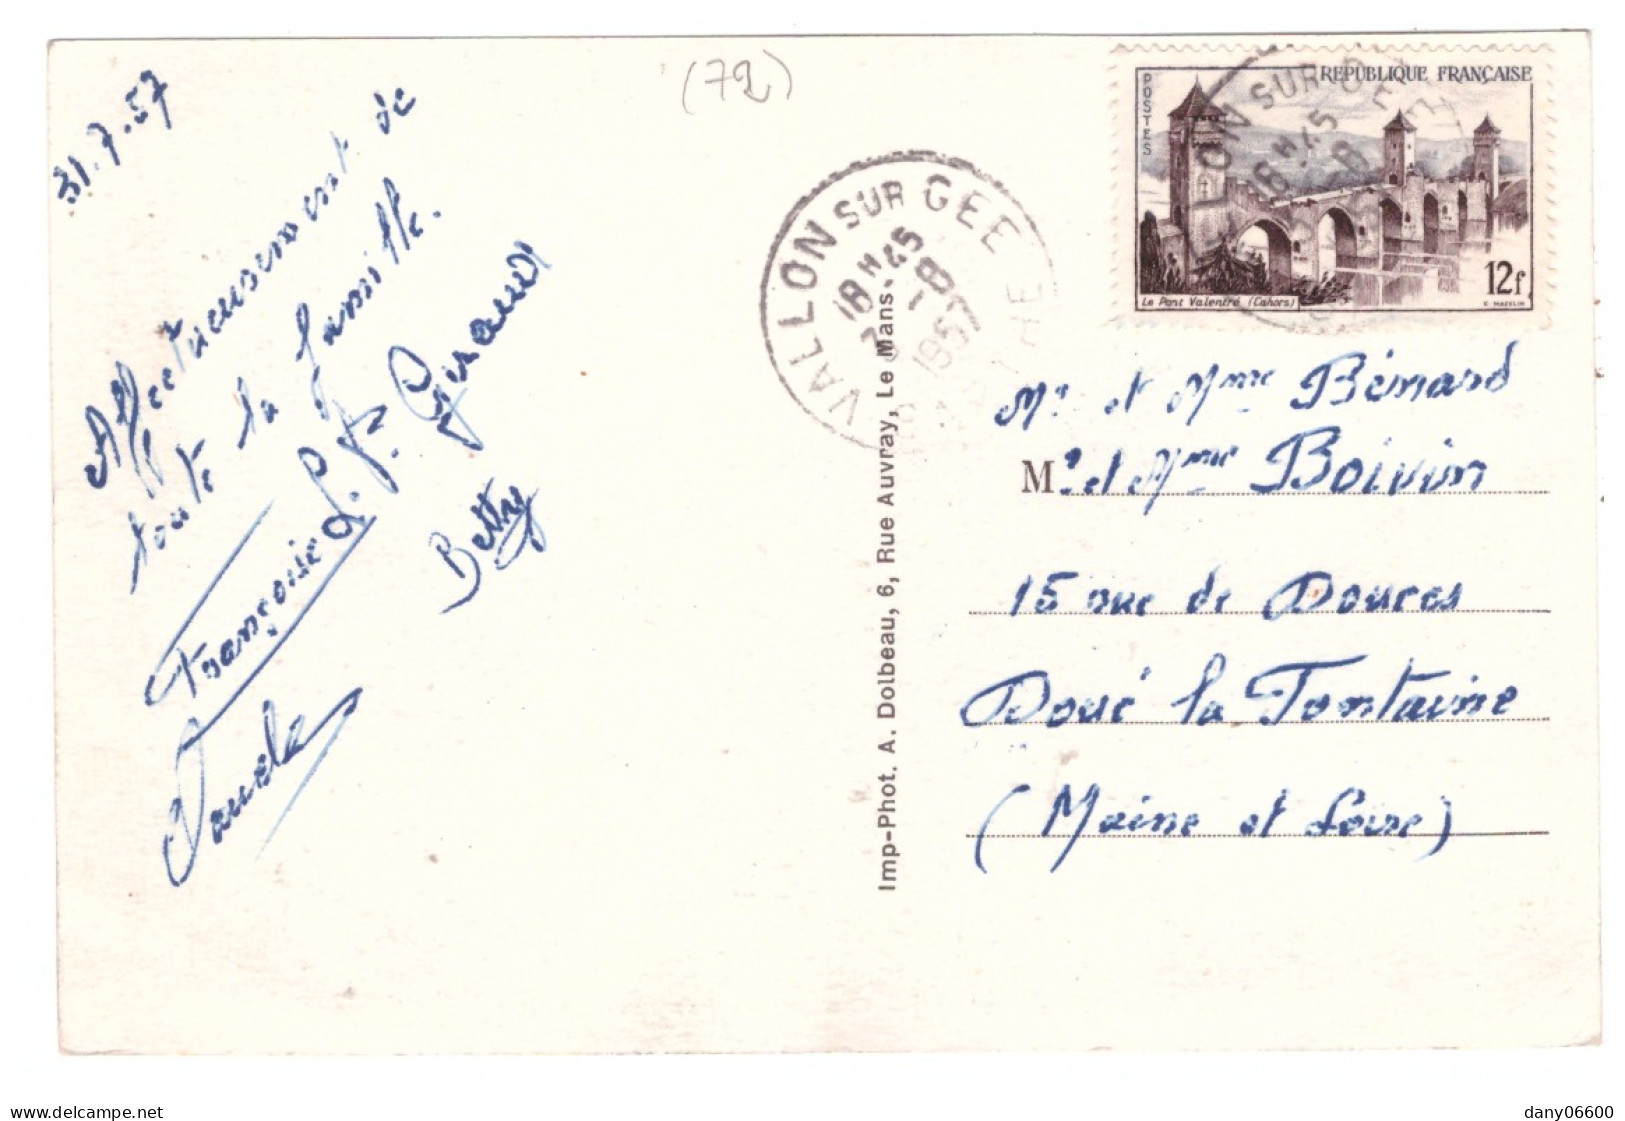 (72)
31.7.57
Affectueusement de
toute la famille.
Françoise L. F. Geraud
Betty
VALLON SUR GEE
18 H 45
1 - 8
1957
REPUBLIQUE FRANÇAISE
POSTES
12f
Le Pont Valentré (Cahors)
C. MAZELIN
LON SUR GEE
18 H 45
Imp-Phot. A. Dolbeau, 6, Rue Auvray, Le Mans
Mr et Mme Bénard
Mr et Mme Boivin
15 rue de Douces
Doué la Fontaine
(Maine et Loire)
delcampe.net
dany06600